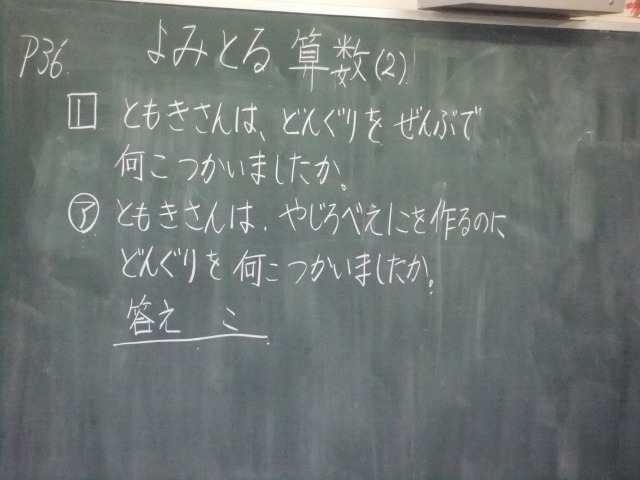 P36 よみとる算数(2)
1 ともきさんは、どんぐりをぜんぶで
何こつかいましたか。
ア ともきさんは、やじろべえにを作るのに
どんぐりを何こつかいましたか。
答え こ